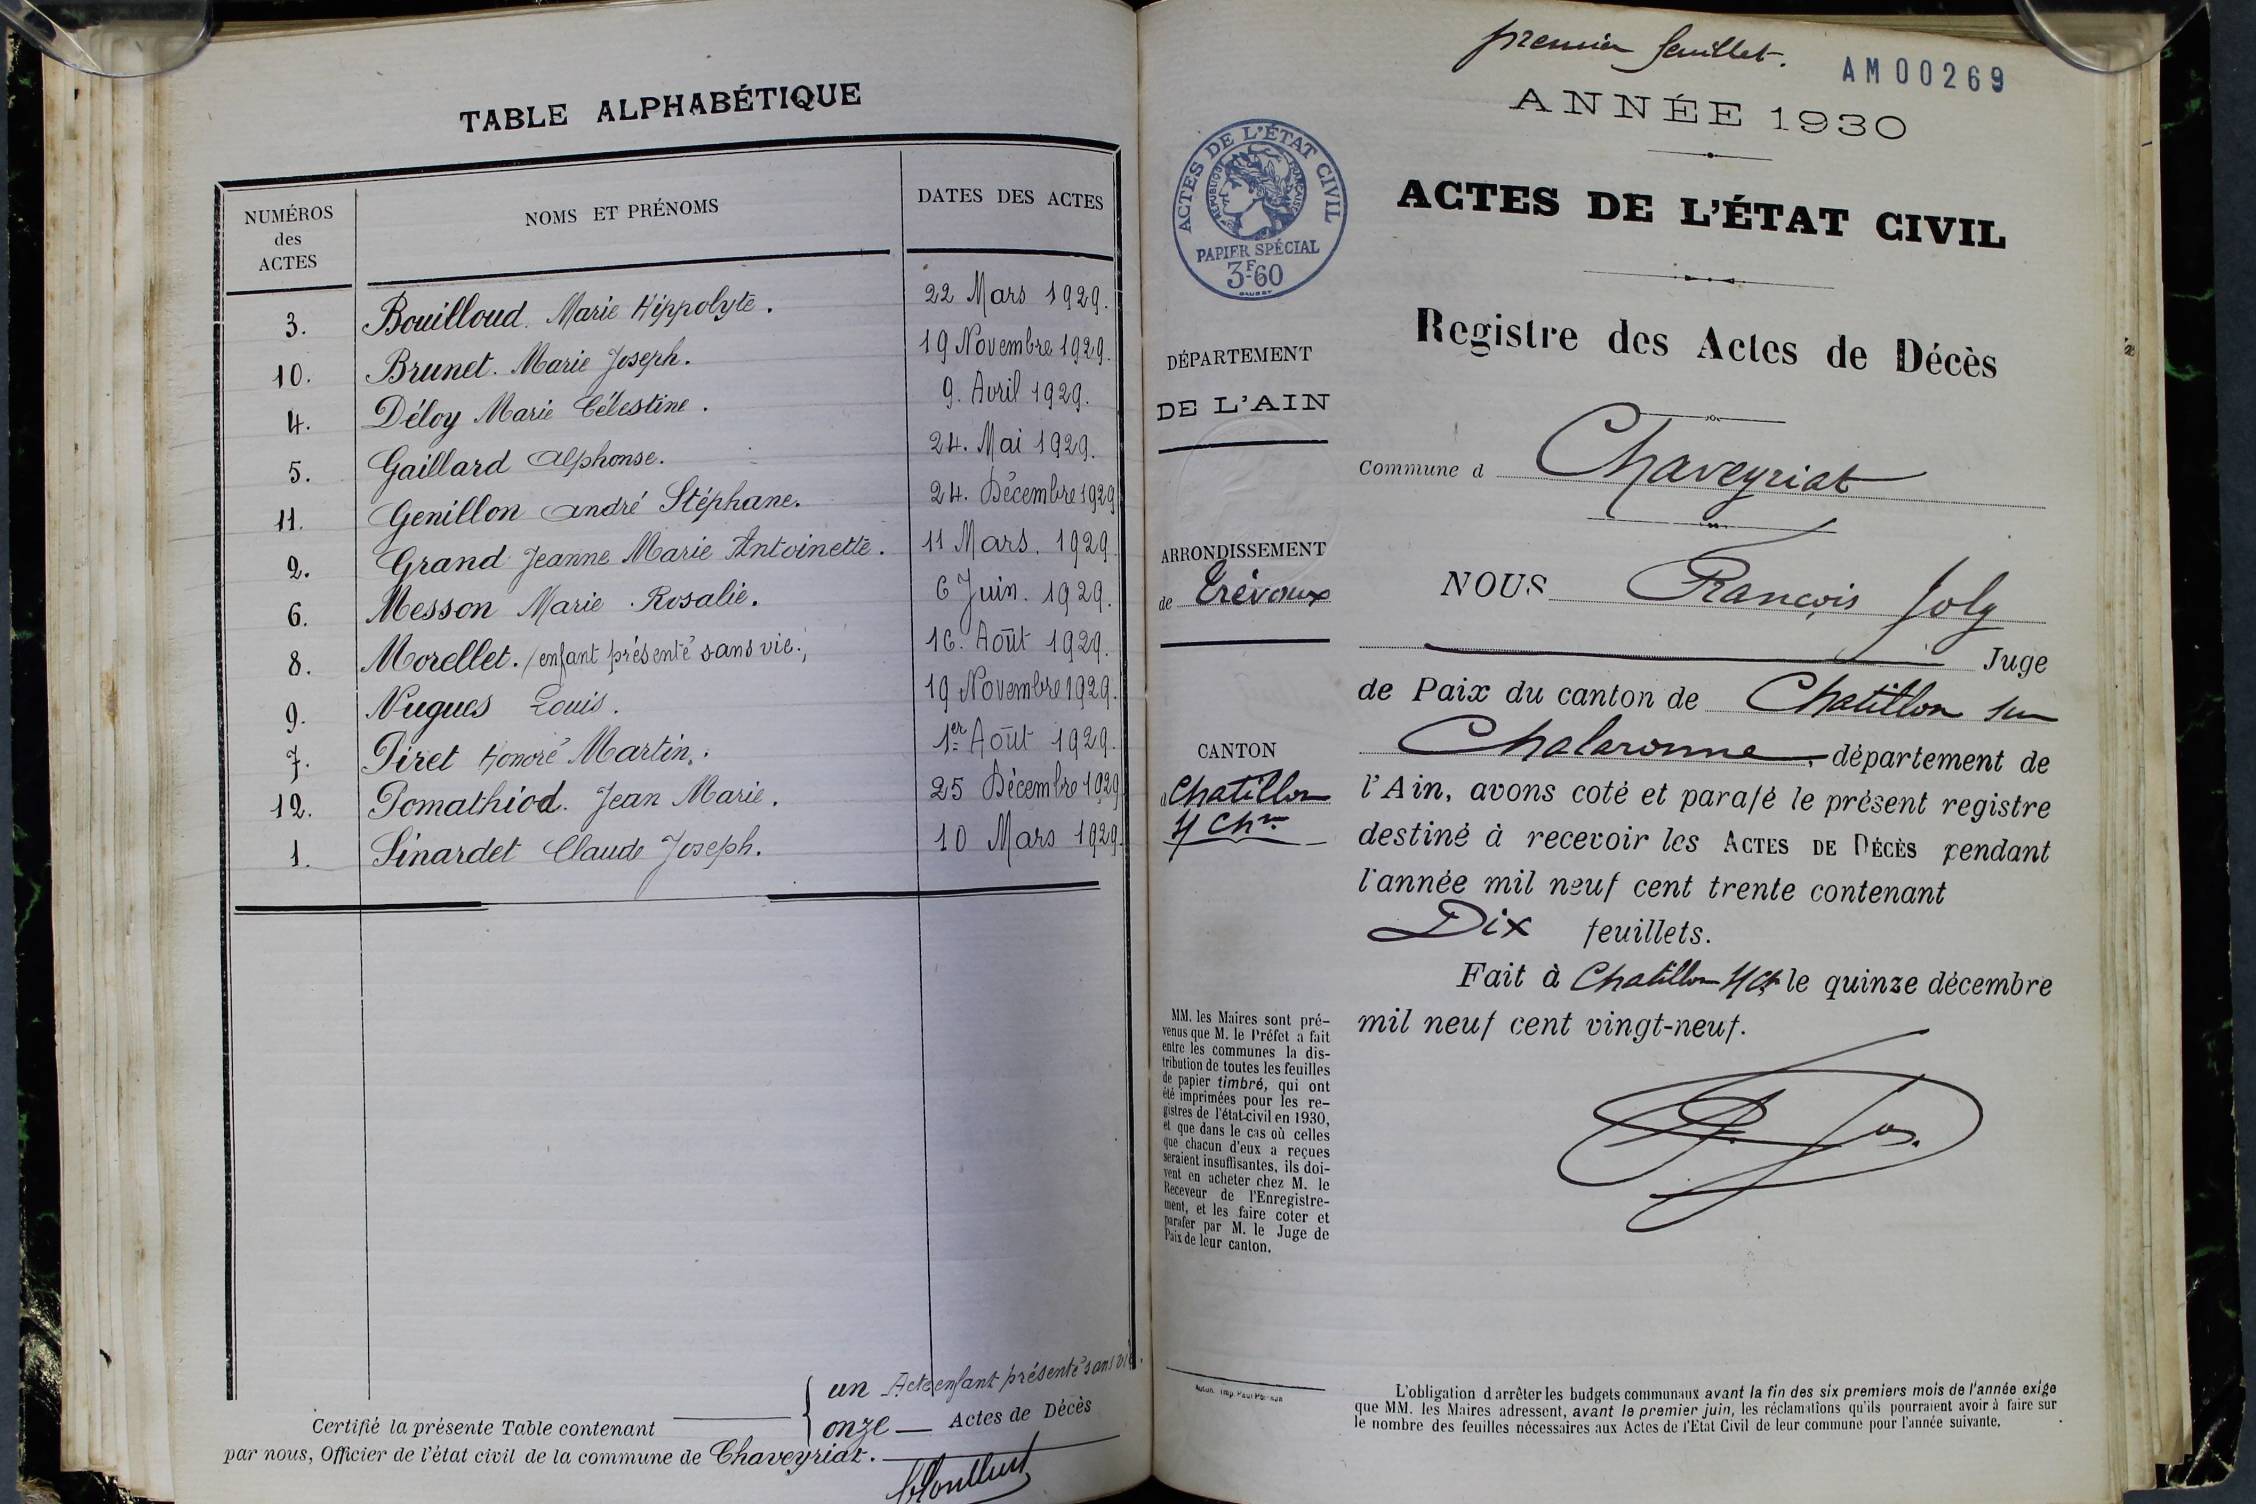 TABLE ALPHABÉTIQUE
NUMÉROS des ACTES NOMS ET PRÉNOMS DATES DES ACTES
3. Bouilloud. Marie Hippolyte. 22 Mars 1929.
10. Brunet. Marie Joseph. 19 Novembre 1929.
4. Déloy Marie Célestine. 9. Avril 1929.
5. Gaillard Alphonse. 24. Mai 1929.
11. Genillon André Stéphane. 24. Décembre 1929
2. Grand Jeanne Marie Antoinette. 11 Mars. 1929.
6. Messon Marie Rosalie. 6 Juin. 1929.
8. Morellet. (enfant présenté sans vie.) 16. Août 1929.
9. Nugues Louis. 19 Novembre 1929.
7. Piret Honoré Martin. 1er Août 1929.
12. Pomathiod. Jean Marie. 25 Décembre 1929
1. Sinardet Claude Joseph. 10 Mars 1929.
un Acte enfant présenté sans vie.
Certifié la présente Table contenant onze Actes de Décès
par nous, Officier de l'état civil de la commune de Chaveyriat.
premier feuillet.
AM00269
ANNÉE 1930
ACTES DE L'ÉTAT CIVIL
RÉPUBLIQUE FRANÇAISE
PAPIER SPÉCIAL
3F60
ACTES DE L'ÉTAT CIVIL
Registre des Actes de Décès
DÉPARTEMENT
DE L'AIN
Commune d Chaveyriat
ARRONDISSEMENT
de Trévoux
NOUS François Joly
Juge
de Paix du canton de Chatillon sur
Chalaronne, département de
CANTON
d Chatillon
s/ Chne
l'Ain, avons coté et parafé le présent registre
destiné à recevoir les ACTES DE DÉCÈS pendant
l'année mil neuf cent trente contenant
Dix feuillets.
Fait à Chatillon s/Ch le quinze décembre
mil neuf cent vingt-neuf.
MM. les Maires sont pré-
venus que M. le Préfet a fait
entre les communes la dis-
tribution de toutes les feuilles
de papier timbré, qui ont
été imprimées pour les re-
gistres de l'état-civil en 1930,
et que dans le cas où celles
que chacun d'eux a reçues
seraient insuffisantes, ils doi-
vent en acheter chez M. le
Receveur de l'Enregistre-
ment, et les faire coter et
parafer par M. le Juge de
Paix de leur canton.
L'obligation d'arrêter les budgets communaux avant la fin des six premiers mois de l'année exige
que MM. les Maires adressent, avant le premier juin, les réclamations qu'ils pourraient avoir à faire sur
le nombre des feuilles nécessaires aux Actes de l'Etat Civil de leur commune pour l'année suivante.